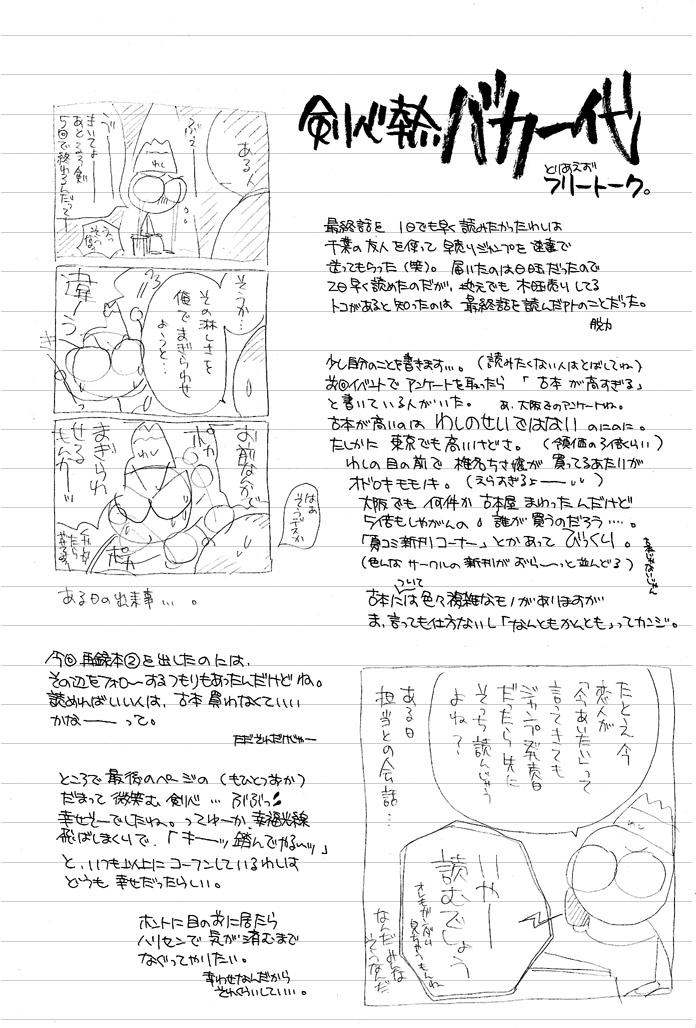 剣心熱バカ一代
とりあえず
フリートーク。
ある人
ぶえー
きいてよー
あと 剣
5回で終わるんだってー
えっ
そうか…
その淋しさを
俺でまぎらわせ
ようと…
違ーう
お前なんかで
まぎらわ
せる
もんかーッ
ポカ
ポカ
はあ
そうデスカ
ある日の出来事…。
最終話を 1日でも早く読みたかったわしは
千葉の友人を使って早売りジャンプを速達で
送ってもらった(笑)。届いたのは日曜だったので
2日早く読めたのだが、地元でも木曜売りしてる
トコがあると知ったのは 最終話を読んだアトのことだった。
脱力
少し自分のことを書きます…。(読みたくない人はとばしてね)
前回イベントでアンケートを取ったら「古本が高すぎる」
と書いている人がいた。 あ、大阪でのアンケートね。
古本が高いのは わしのせいではない のにのに。
たしかに 東京でも高いけどさ。(領価の3倍くらい)
わしの目の前で 椎名ちさ嬢が 買ってるあたりが
オドロキモモノキ。(えらすぎるよー)
大阪でも 何件か古本屋 まわったんだけど
5倍もしやがんの 誰が買うのだろう…。
「買コミ新刊コーナー」とかあって びっくり。
(色んな サークルの新刊が ずら〜っと並んどる)
古本には色々複雑なモノがありますが
ついて
ま、言っても仕方ないし「なんともかんとも」ってカンジ。
今回再録本②を出したのには、
その辺をフォローするつもりもあったんだけど ね。
読めればいい人は、古本 買わなくていい
かなーー って。
ただそんだけじゃー
ところで最後のページの(もひとつすか)
だまって微笑む 剣心 … ぶぶっ
幸せそーでしたね。ってゆーか、幸福光線
飛ばしまくりで、「キーッッ踏んでやるーッ」
と、いつも以上にコーフンしているわしは
どうも 幸せだったらしい。
ホントに目の前に居たら
ハリセンで 気が済むまで
なぐってやりたい。
幸わせなんだから
それくらいしていい…。
たとえ今
恋人が
「今あいたい」って
言ってきても
ジャンプ発売日
だったら先に
そっち読んじゃう
よね?
ある日
担当との会話…
いやー
読むでしょう
なんだみな
そうなんだ